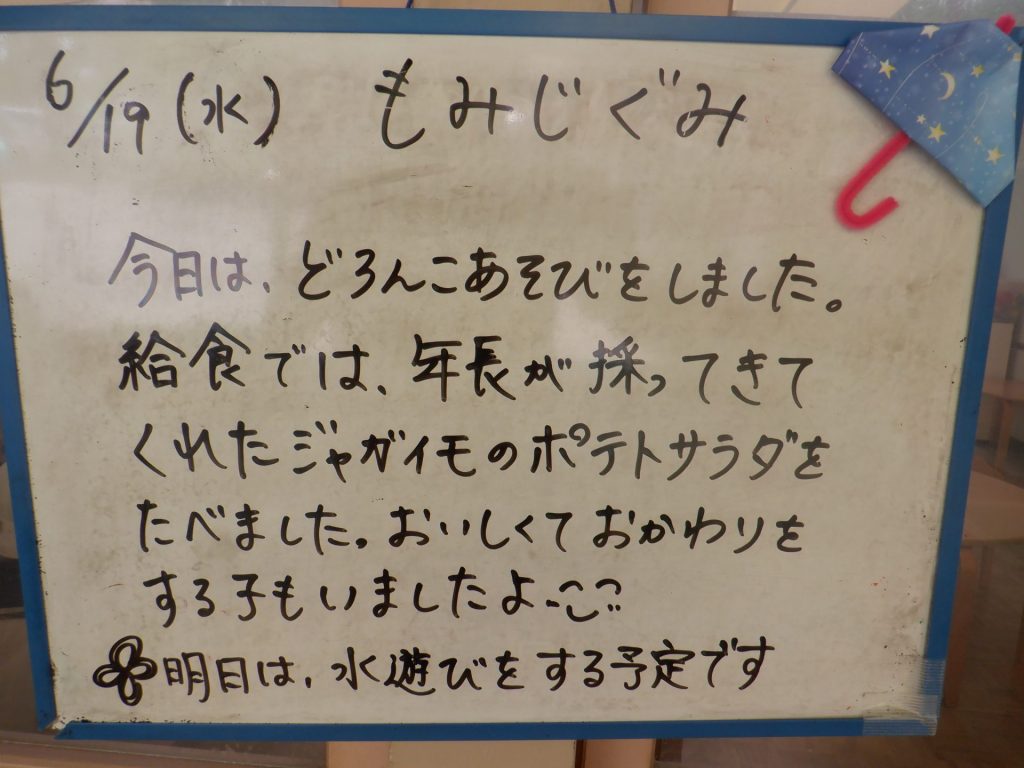 6/19(水) もみじぐみ
今日は、どろんこあそびをしました。
給食では、年長が採ってきて
くれたジャガイモのポテトサラダを
たべました。おいしくておかわりを
する子もいましたよ
明日は、水遊びをする予定です